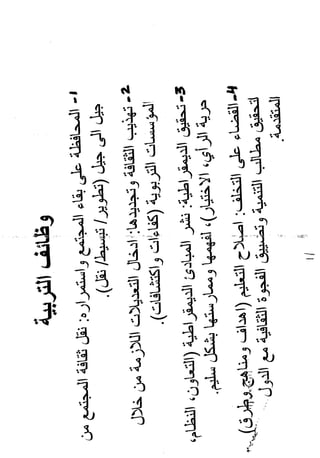 وظائف التربية
1- المحافظة على بقاء المجتمع واستمراره: نقل ثقافة المجتمع من
جيل الى جيل (تطوير/ تبسيط/ نقل).
2- تهذيب الثقافة وتجديدها: ادخال التعديلات اللازمة من خلال
المؤسسات التربوية (كفاءات واكتشافات).
3- تحقيق الديمقراطية: نشر المبادئ الديمقراطية (التعاون، النظام،
حرية الرأي، الاختيار)، لفهمها وممارستها بشكل سليم.
4- القضاء على التخلف: اصلاح التعليم (اهداف ومناهج وطرق)
لتحقيق مطالب التنمية وتضييق الفجوة الثقافية مع الدول
المتقدمة.